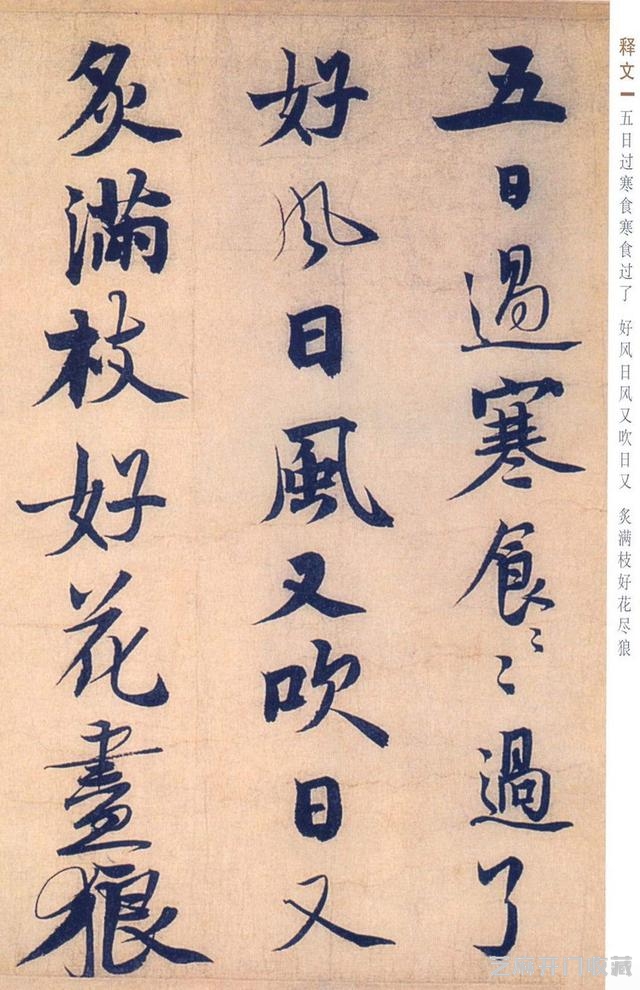 释文 五日过寒食寒食过了 好风日风又吹日又 炙满枝好花尽狼
五日過寒食〻〻過了
好風日風又吹日又
炙滿枝好花盡狼
芝麻开门收藏